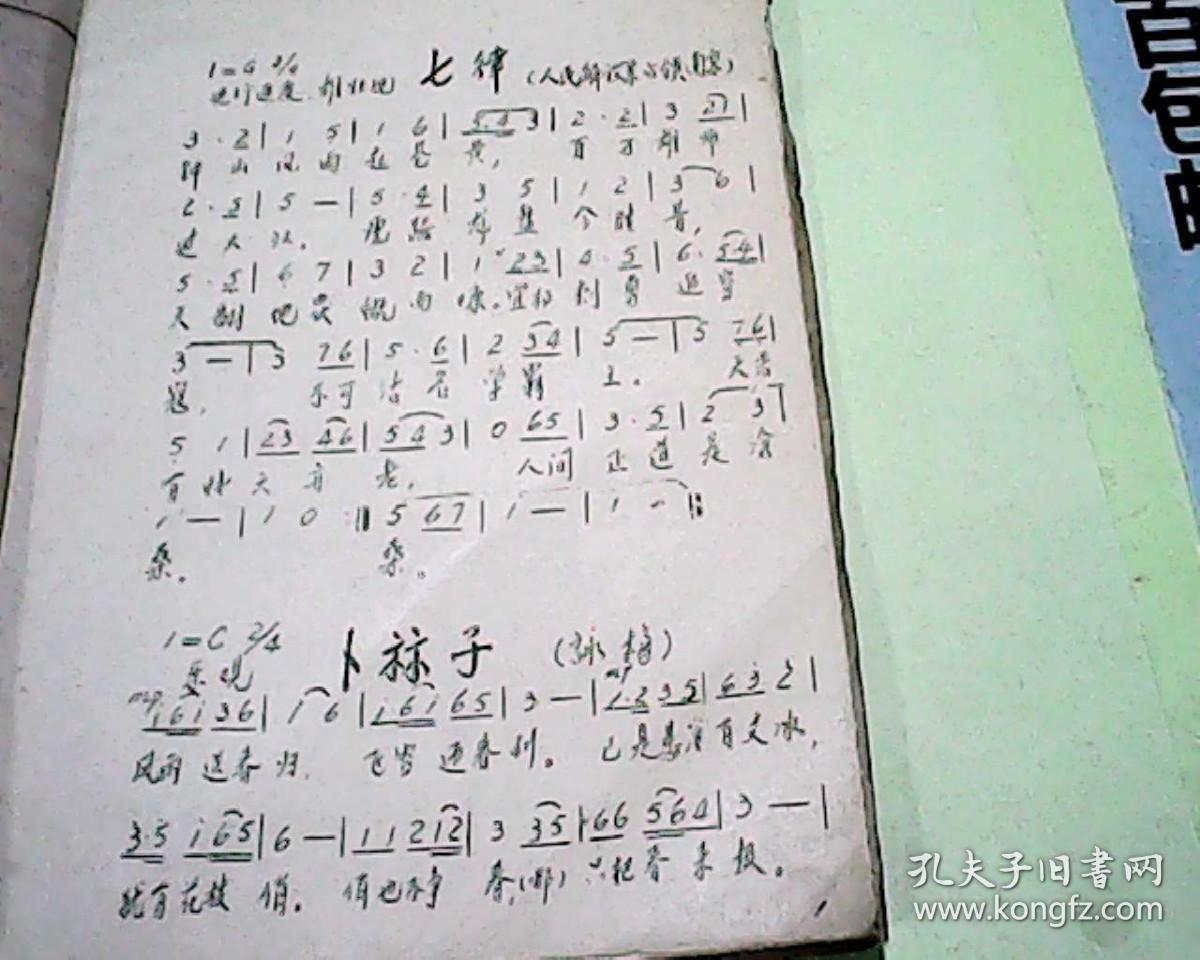 1=G 2/4 七律 (人民解放军占领南京)
进行速度. 雄壮地
3 · 2 | 1 5 | 1 6 | 5 4 3 | 2 · 2 | 3 21 |
钟山风雨起苍黄, 百万雄师
2 · 5 | 5 — | 5 · 4 | 3 5 | 1 2 | 3 6 |
过大江. 虎踞龙盘今胜昔,
5 · 5 | 6 7 | 3 2 | 1 23 | 4 · 5 | 6 · 54 |
天翻地 慨而慷. 宜将剩勇追穷
3 — | 3 76 | 5 · 6 | 2 54 | 5 — | 5 76 |
寇, 不可沽名学霸王. 天若
5 1 | 23 46 | 5 4 3 | 0 65 | 3 · 5 | 2 3 |
有情天亦老, 人间正道是沧
1 — | 1 0 :‖ 5 67 | 1 — | 1 — ‖
桑。 桑。
1=C 2/4 卜祘子 (詠梅)
乐观
mp i6i 36 | i 6 | i6i 65 | 3 — | mp 1·2 35 | 63 2 |
风雨送春归. 飞雪迎春到。 已是悬 百丈冰,
3·5 i65 | 6 — | 11 212 | 3 35 | 66 564 | 3 — |
犹有花枝俏。 俏也不争春,(那) 只把春来报。
孔夫子旧书网
www.kongfz.com
百色